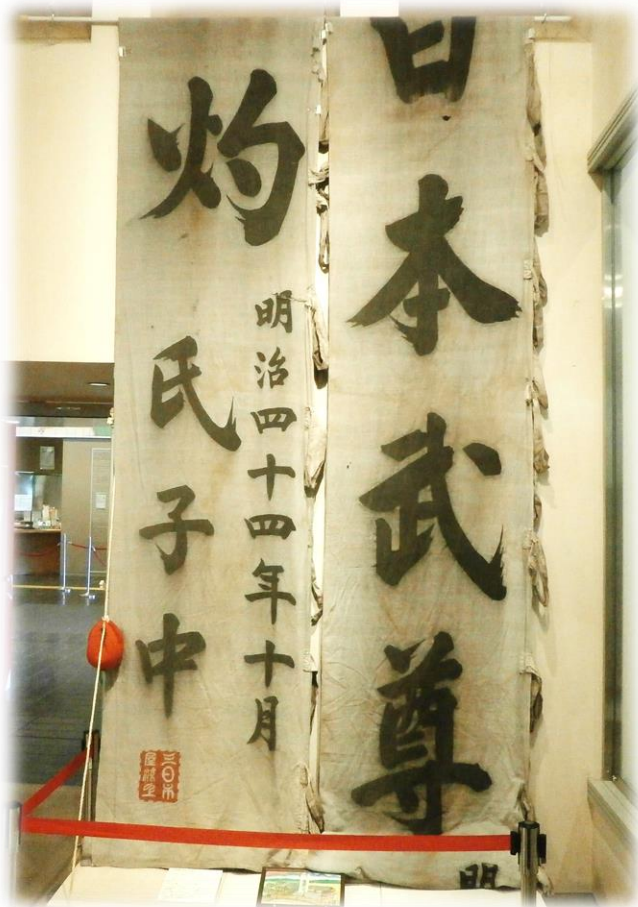 日本武尊
明
灼
明治四十四年十月
氏子中